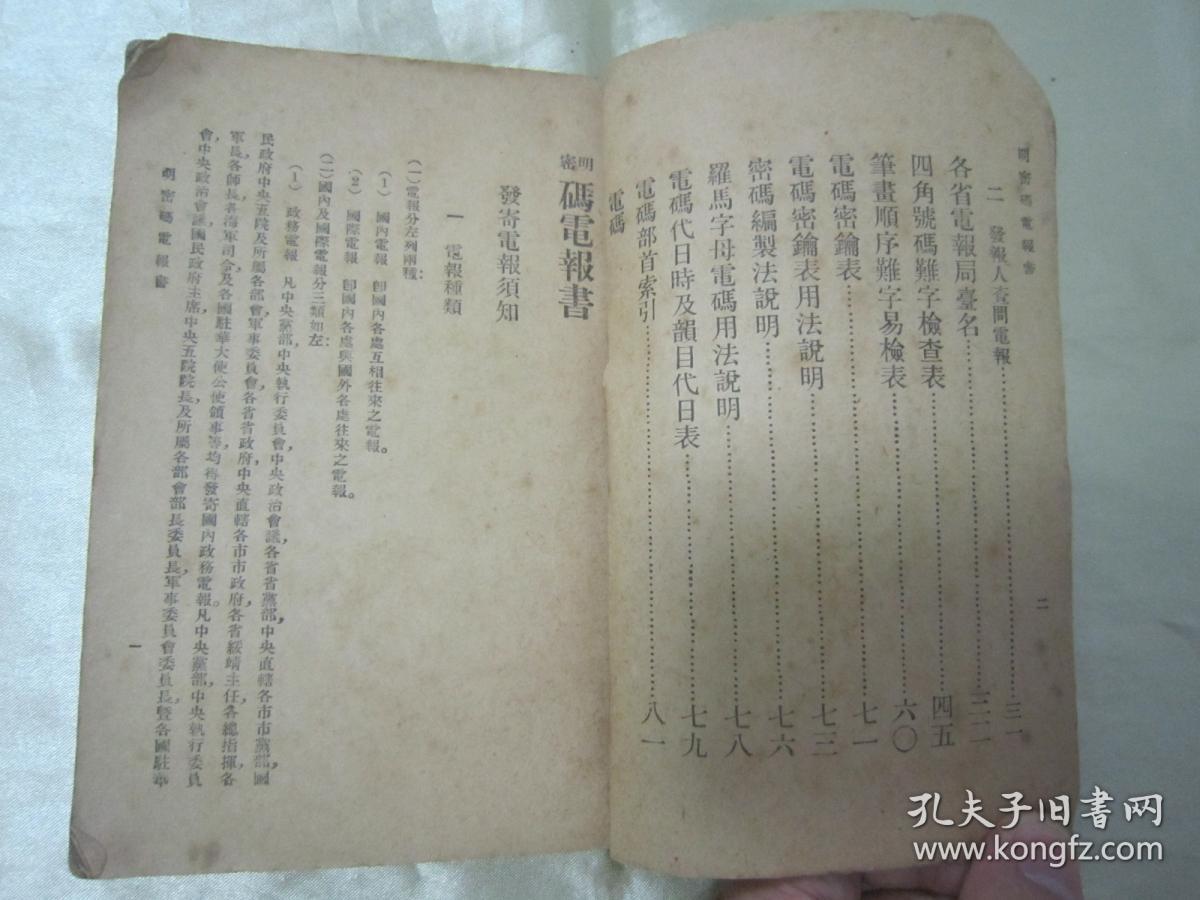 明密碼電報書
二 發報人查問電報……三一
各省電報局臺名……三二
四角號碼難字檢查表……四五
筆畫順序難字易檢表……六〇
電碼密鑰表……七一
電碼密鑰表用法說明……七三
密碼編製法說明……七六
羅馬字母電碼用法說明……七八
電碼代日時及韻目代日表……七九
電碼部首索引……八一
電碼
二
明密碼電報書
發寄電報須知
一 電報種類
(一)電報分左列兩種:
(1) 國內電報 卽國內各處互相往來之電報。
(2) 國際電報 卽國內各處與國外各處往來之電報。
(二)國內及國際電報分三類如左:
(1) 政務電報 凡中央黨部,中央執行委員會,中央政治會議,各省省黨部,中央直轄各市市黨部,國
民政府中央五院及所屬各部會,軍事委員會,各省省政府,中央直轄各市市政府,各省綏靖主任,各總指揮,各
軍長,各師長,各海軍司令,及各國駐華大使公使領事等,均得發寄國內政務電報。凡中央黨部,中央執行委員
會,中央政治會議,國民政府主席,中央五院院長,及所屬各部會部長委員長,軍事委員會委員長,暨各國駐華
明密碼電報書
一
孔夫子旧书网
www.kongfz.com